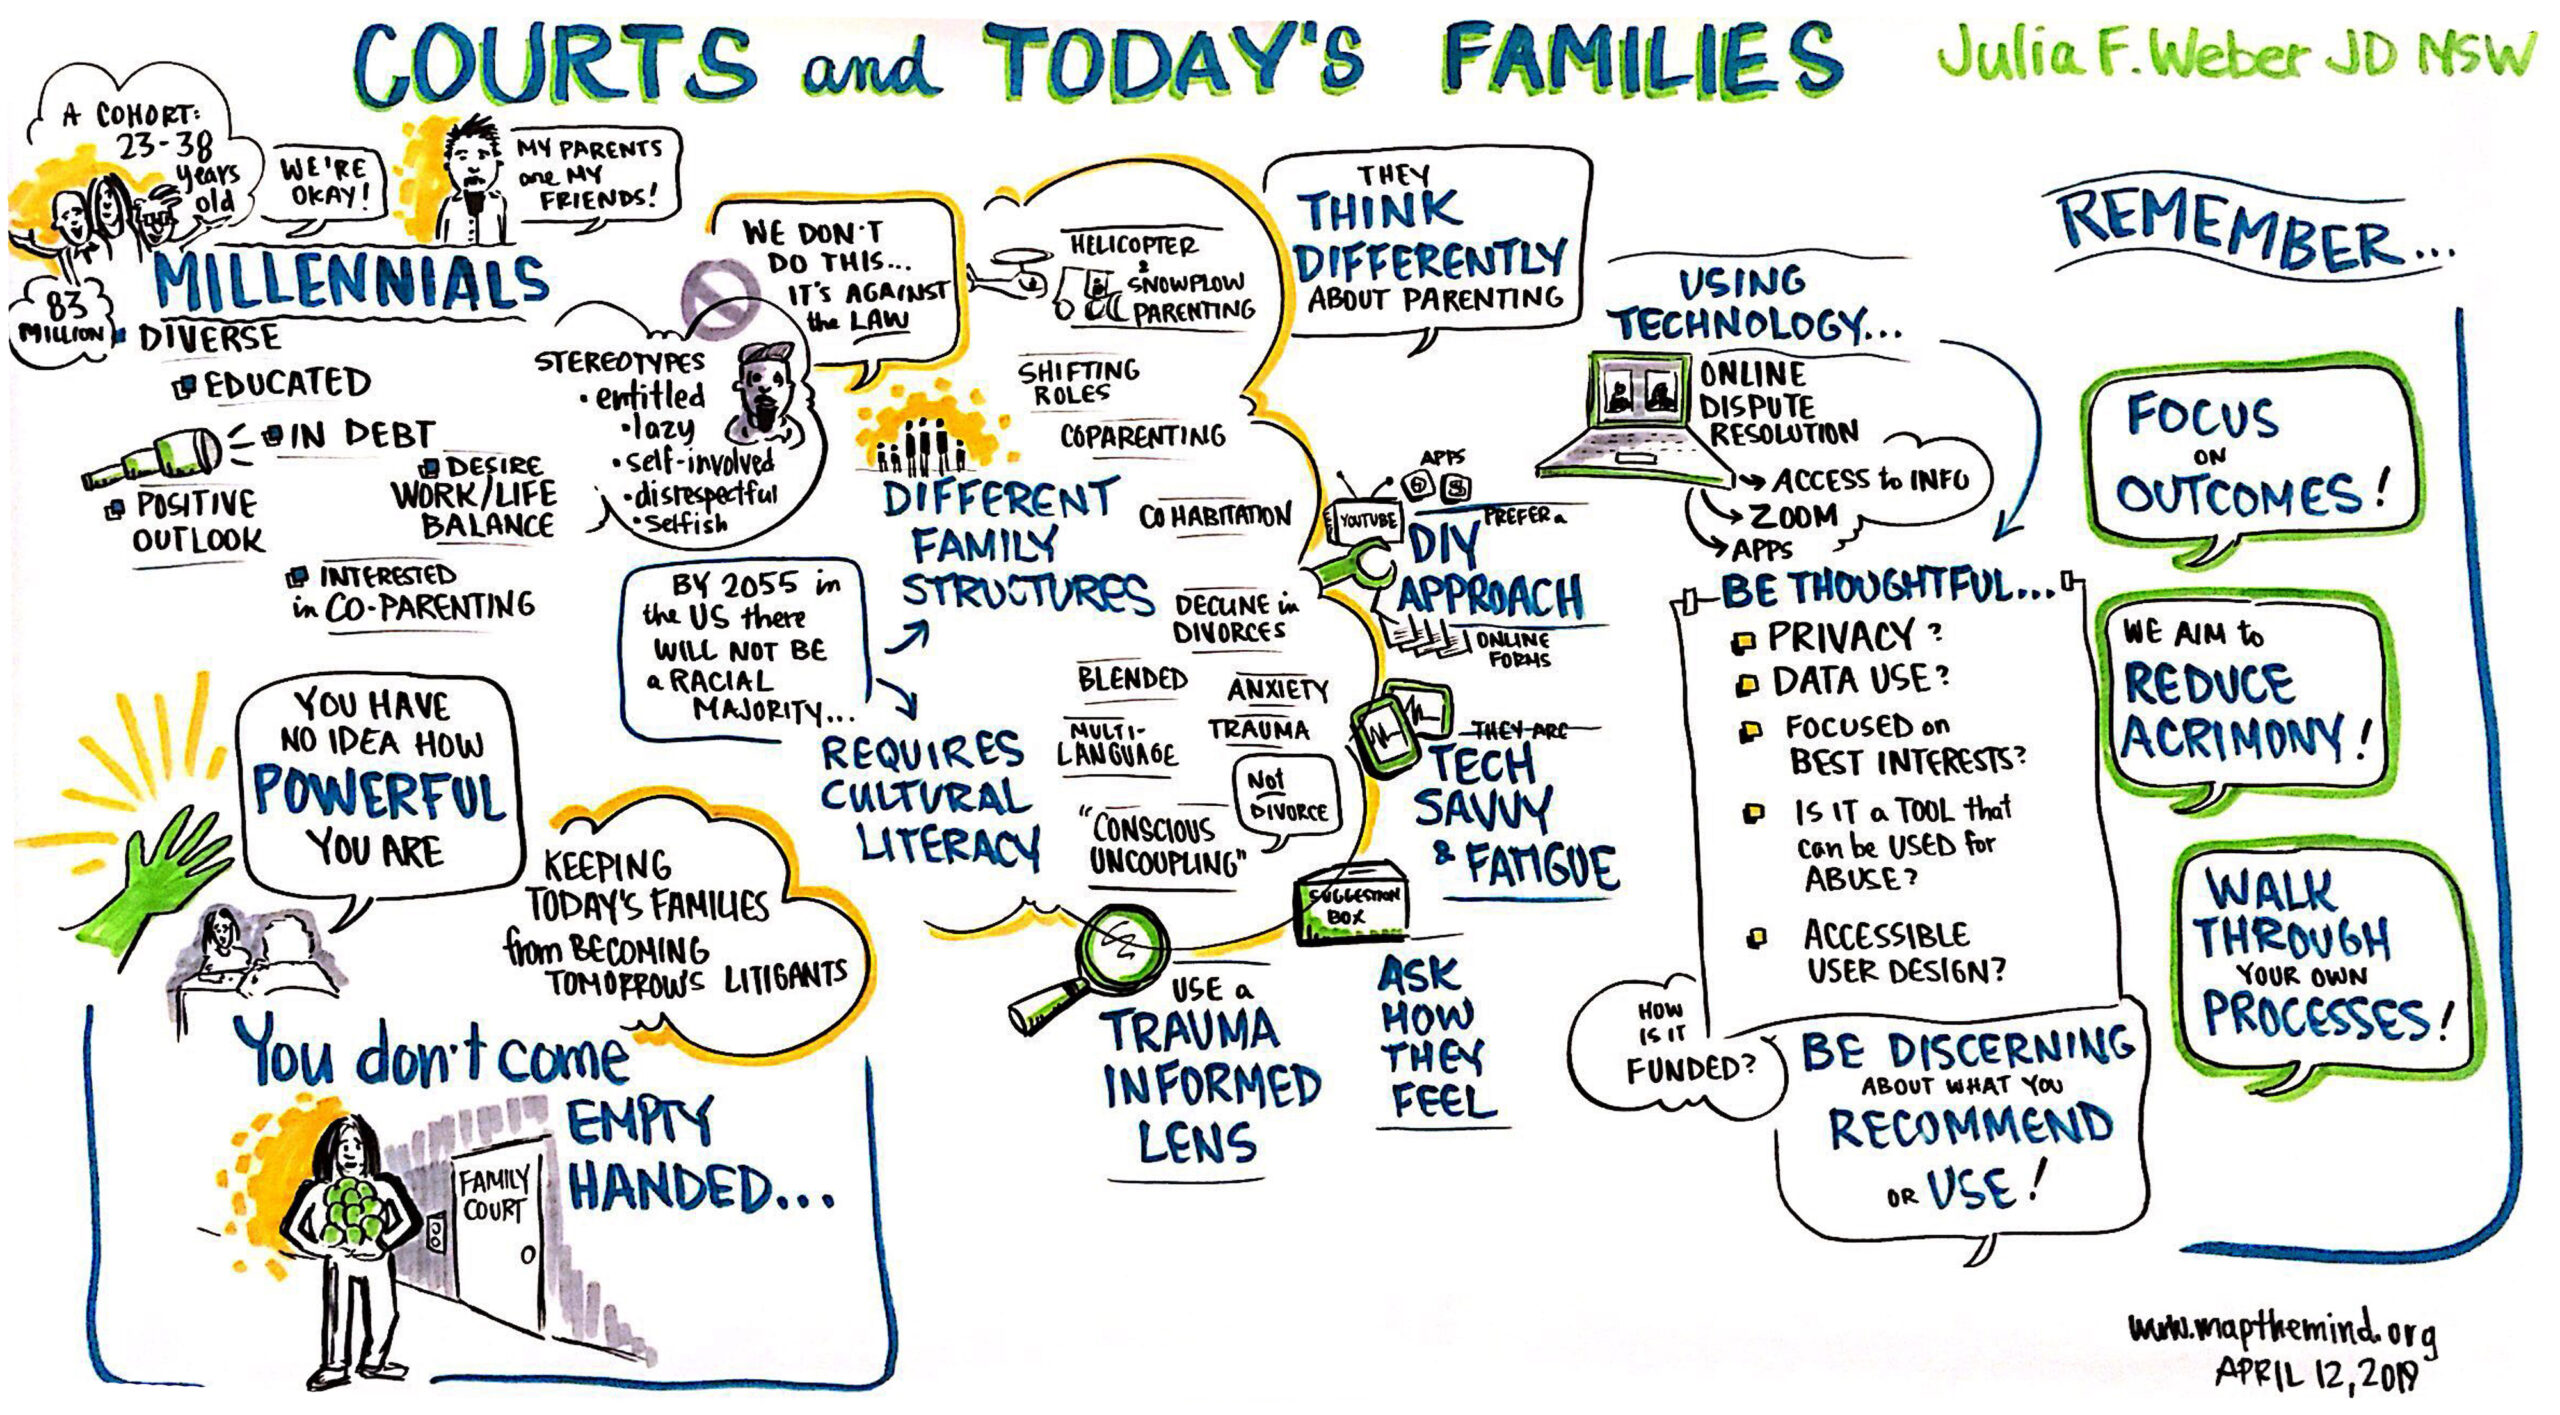 COURTS and TODAY'S FAMILIES
Julia F. Weber JD MSW
A COHORT:
23-38
years
old
WE'RE
OKAY!
MY PARENTS
are MY
FRIENDS!
MILLENNIALS
83
MILLION
DIVERSE
EDUCATED
IN DEBT
POSITIVE
OUTLOOK
DESIRE
WORK/LIFE
BALANCE
INTERESTED
in CO-PARENTING
STEREOTYPES
• entitled
• lazy
• self-involved
• disrespectful
• selfish
WE DON'T
DO THIS...
IT'S AGAINST
the LAW
YOU HAVE
NO IDEA HOW
POWERFUL
YOU ARE
KEEPING
TODAY'S FAMILIES
from BECOMING
TOMORROW'S LITIGANTS
You don't come
EMPTY
HANDED...
FAMILY
COURT
BY 2055 in
the US there
WILL NOT BE
a RACIAL
MAJORITY...
DIFFERENT
FAMILY
STRUCTURES
REQUIRES
CULTURAL
LITERACY
HELICOPTER
&
SNOWPLOW
PARENTING
SHIFTING
ROLES
COPARENTING
COHABITATION
DECLINE in
DIVORCES
BLENDED
ANXIETY
MULTI-
LANGUAGE
TRAUMA
Not
DIVORCE
"CONSCIOUS
UNCOUPLING"
THEY
THINK
DIFFERENTLY
ABOUT PARENTING
APPS
YOUTUBE
PREFER a
DIY
APPROACH
ONLINE
FORMS
THEY ARE
TECH
SAVVY
& FATIGUE
SUGGESTION
BOX
USE a
TRAUMA
INFORMED
LENS
ASK
HOW
THEY
FEEL
USING
TECHNOLOGY...
ONLINE
DISPUTE
RESOLUTION
ACCESS to INFO
ZOOM
APPS
BE THOUGHTFUL...
PRIVACY?
DATA USE?
FOCUSED on
BEST INTERESTS?
IS IT a TOOL that
can be USED for
ABUSE?
ACCESSIBLE
USER DESIGN?
HOW
IS IT
FUNDED?
BE DISCERNING
ABOUT WHAT YOU
RECOMMEND
OR USE!
REMEMBER...
FOCUS
ON
OUTCOMES!
WE AIM to
REDUCE
ACRIMONY!
WALK
THROUGH
YOUR OWN
PROCESSES!
www.mapthemind.org
APRIL 12, 2019